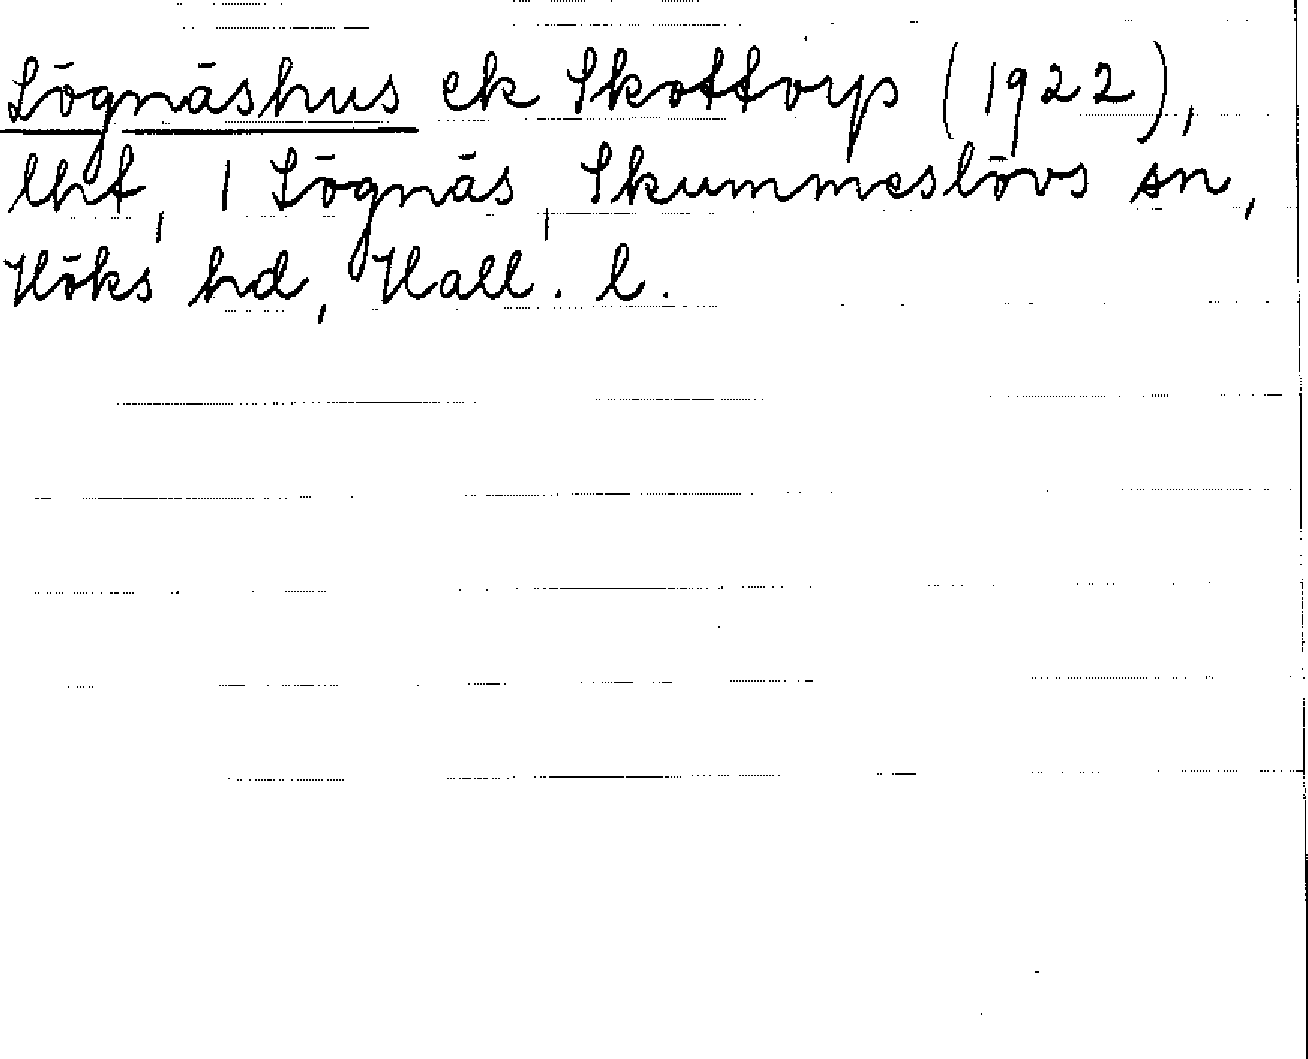 Lögnäshus ek Skottorp (1922),
lht, 1 Lögnäs, Skummeslövs sn,
Höks hd, Hall. l.